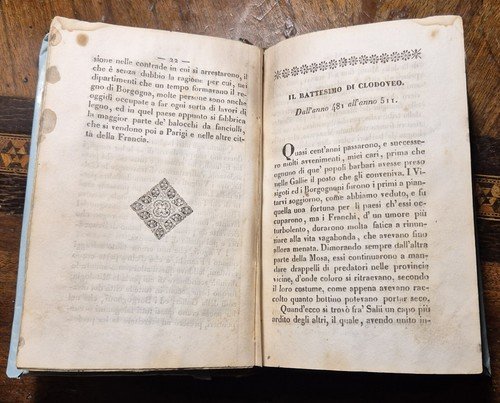 — 22 —
sione nelle contrade in cui si arrestarono, il
che è senza dubbio la ragione per cui, nei
dipartimenti che un tempo formarono il re-
gno di Borgogna, molte persone sono anche
oggidì occupate a far ogni sorta di lavori di
legno, ed in quel paese appunto si fabbrica
la maggior parte de' balocchi da fanciulli,
che si vendono poi a Parigi e nelle altre cit-
tà della Francia.
IL BATTESIMO DI CLODOVEO.
Dall'anno 481 all'anno 511.
Quasi cent'anni passarono, e successe-
ro molti avvenimenti, miei cari, prima che
ognuno di que' popoli barbari avesse preso
nelle Gallie il posto che gli conveniva. I Vi-
sigoti ed i Borgognoni furono i primi a pian-
tarvi soggiorno, come abbiamo veduto, e fu
quella una fortuna per li paesi ch'essi oc-
cuparono, ma i Franchi, d'un umore più
turbolento, durarono molta fatica a rinun-
ziare alla vita vagabonda, che avevano fino
allora menata. Dimorando sempre dall'altra
parte della Mosa, essi continuarono a man-
dare drappelli di predatori nelle provincie
vicine, d'onde coloro si ritraevano, secondo
il loro costume, come appena avevano rac-
colto quanto bottino potevano portar seco.
Quand'ecco si trovò fra' Salii un capo più
ardito degli altri, il quale, avendo unito in-